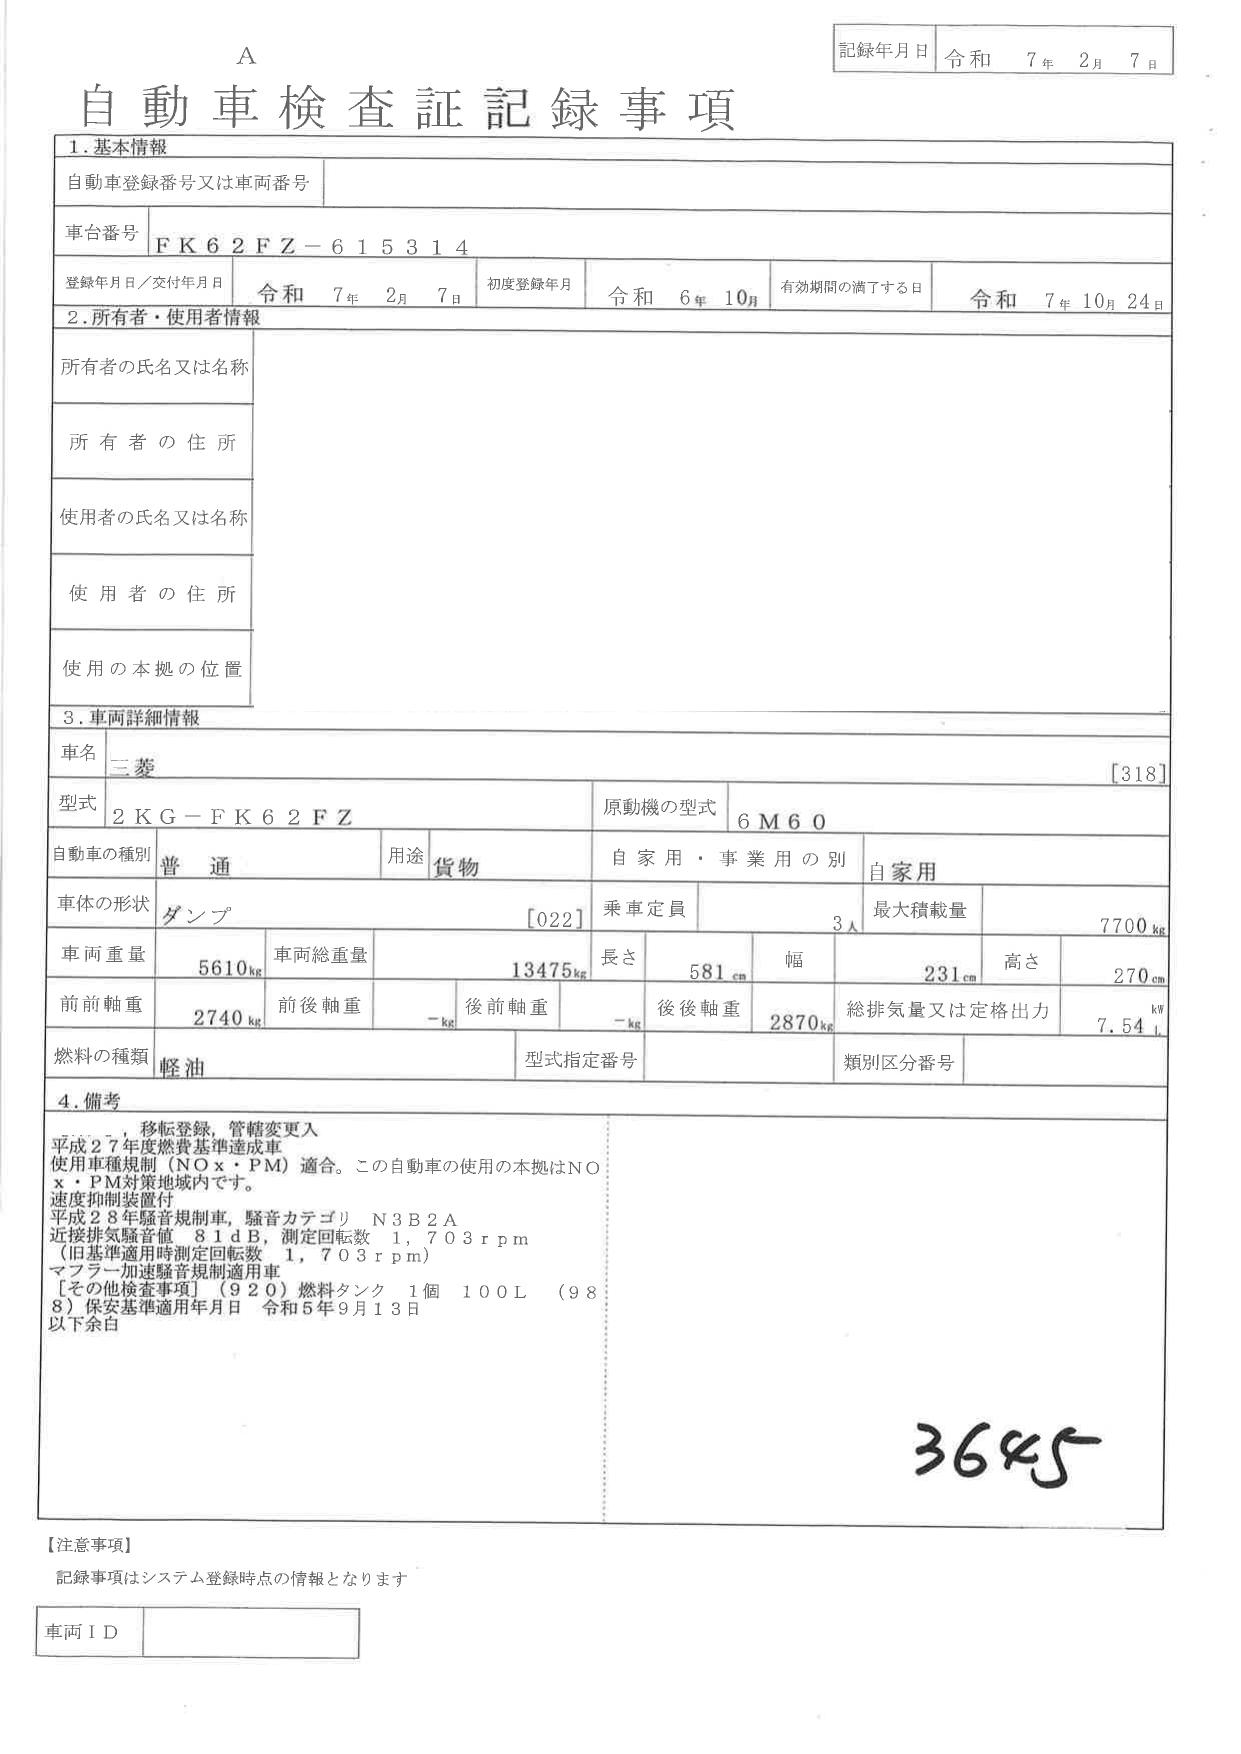 記録年月日 令和 7年 2月 7日
A
自動車検査証記録事項
1.基本情報
自動車登録番号又は車両番号
車台番号 FK62FZ－615314
登録年月日／交付年月日 令和 7年 2月 7日 初度登録年月 令和 6年 10月 有効期間の満了する日 令和 7年 10月 24日
2.所有者・使用者情報
所有者の氏名又は名称
所有者の住所
使用者の氏名又は名称
使用者の住所
使用の本拠の位置
3.車両詳細情報
車名 三菱 [318]
型式 2KG－FK62FZ 原動機の型式 6M60
自動車の種別 普通 用途 貨物 自家用・事業用の別 自家用
車体の形状 ダンプ [022] 乗車定員 3人 最大積載量 7700kg
車両重量 5610kg 車両総重量 13475kg 長さ 581cm 幅 231cm 高さ 270cm
前前軸重 2740kg 前後軸重 －kg 後前軸重 －kg 後後軸重 2870kg 総排気量又は定格出力 7.54 kW L
燃料の種類 軽油 型式指定番号 類別区分番号
4.備考
，移転登録，管轄変更入
平成27年度燃費基準達成車
使用車種規制（NOx・PM）適合。この自動車の使用の本拠はNO
x・PM対策地域内です。
速度抑制装置付
平成28年騒音規制車，騒音カテゴリ N3B2A
近接排気騒音値 81dB，測定回転数 1，703rpm
（旧基準適用時測定回転数 1，703rpm）
マフラー加速騒音規制適用車
［その他検査事項］（920）燃料タンク 1個 100L （98
8）保安基準適用年月日 令和5年9月13日
以下余白
3645
【注意事項】
記録事項はシステム登録時点の情報となります
車両ID